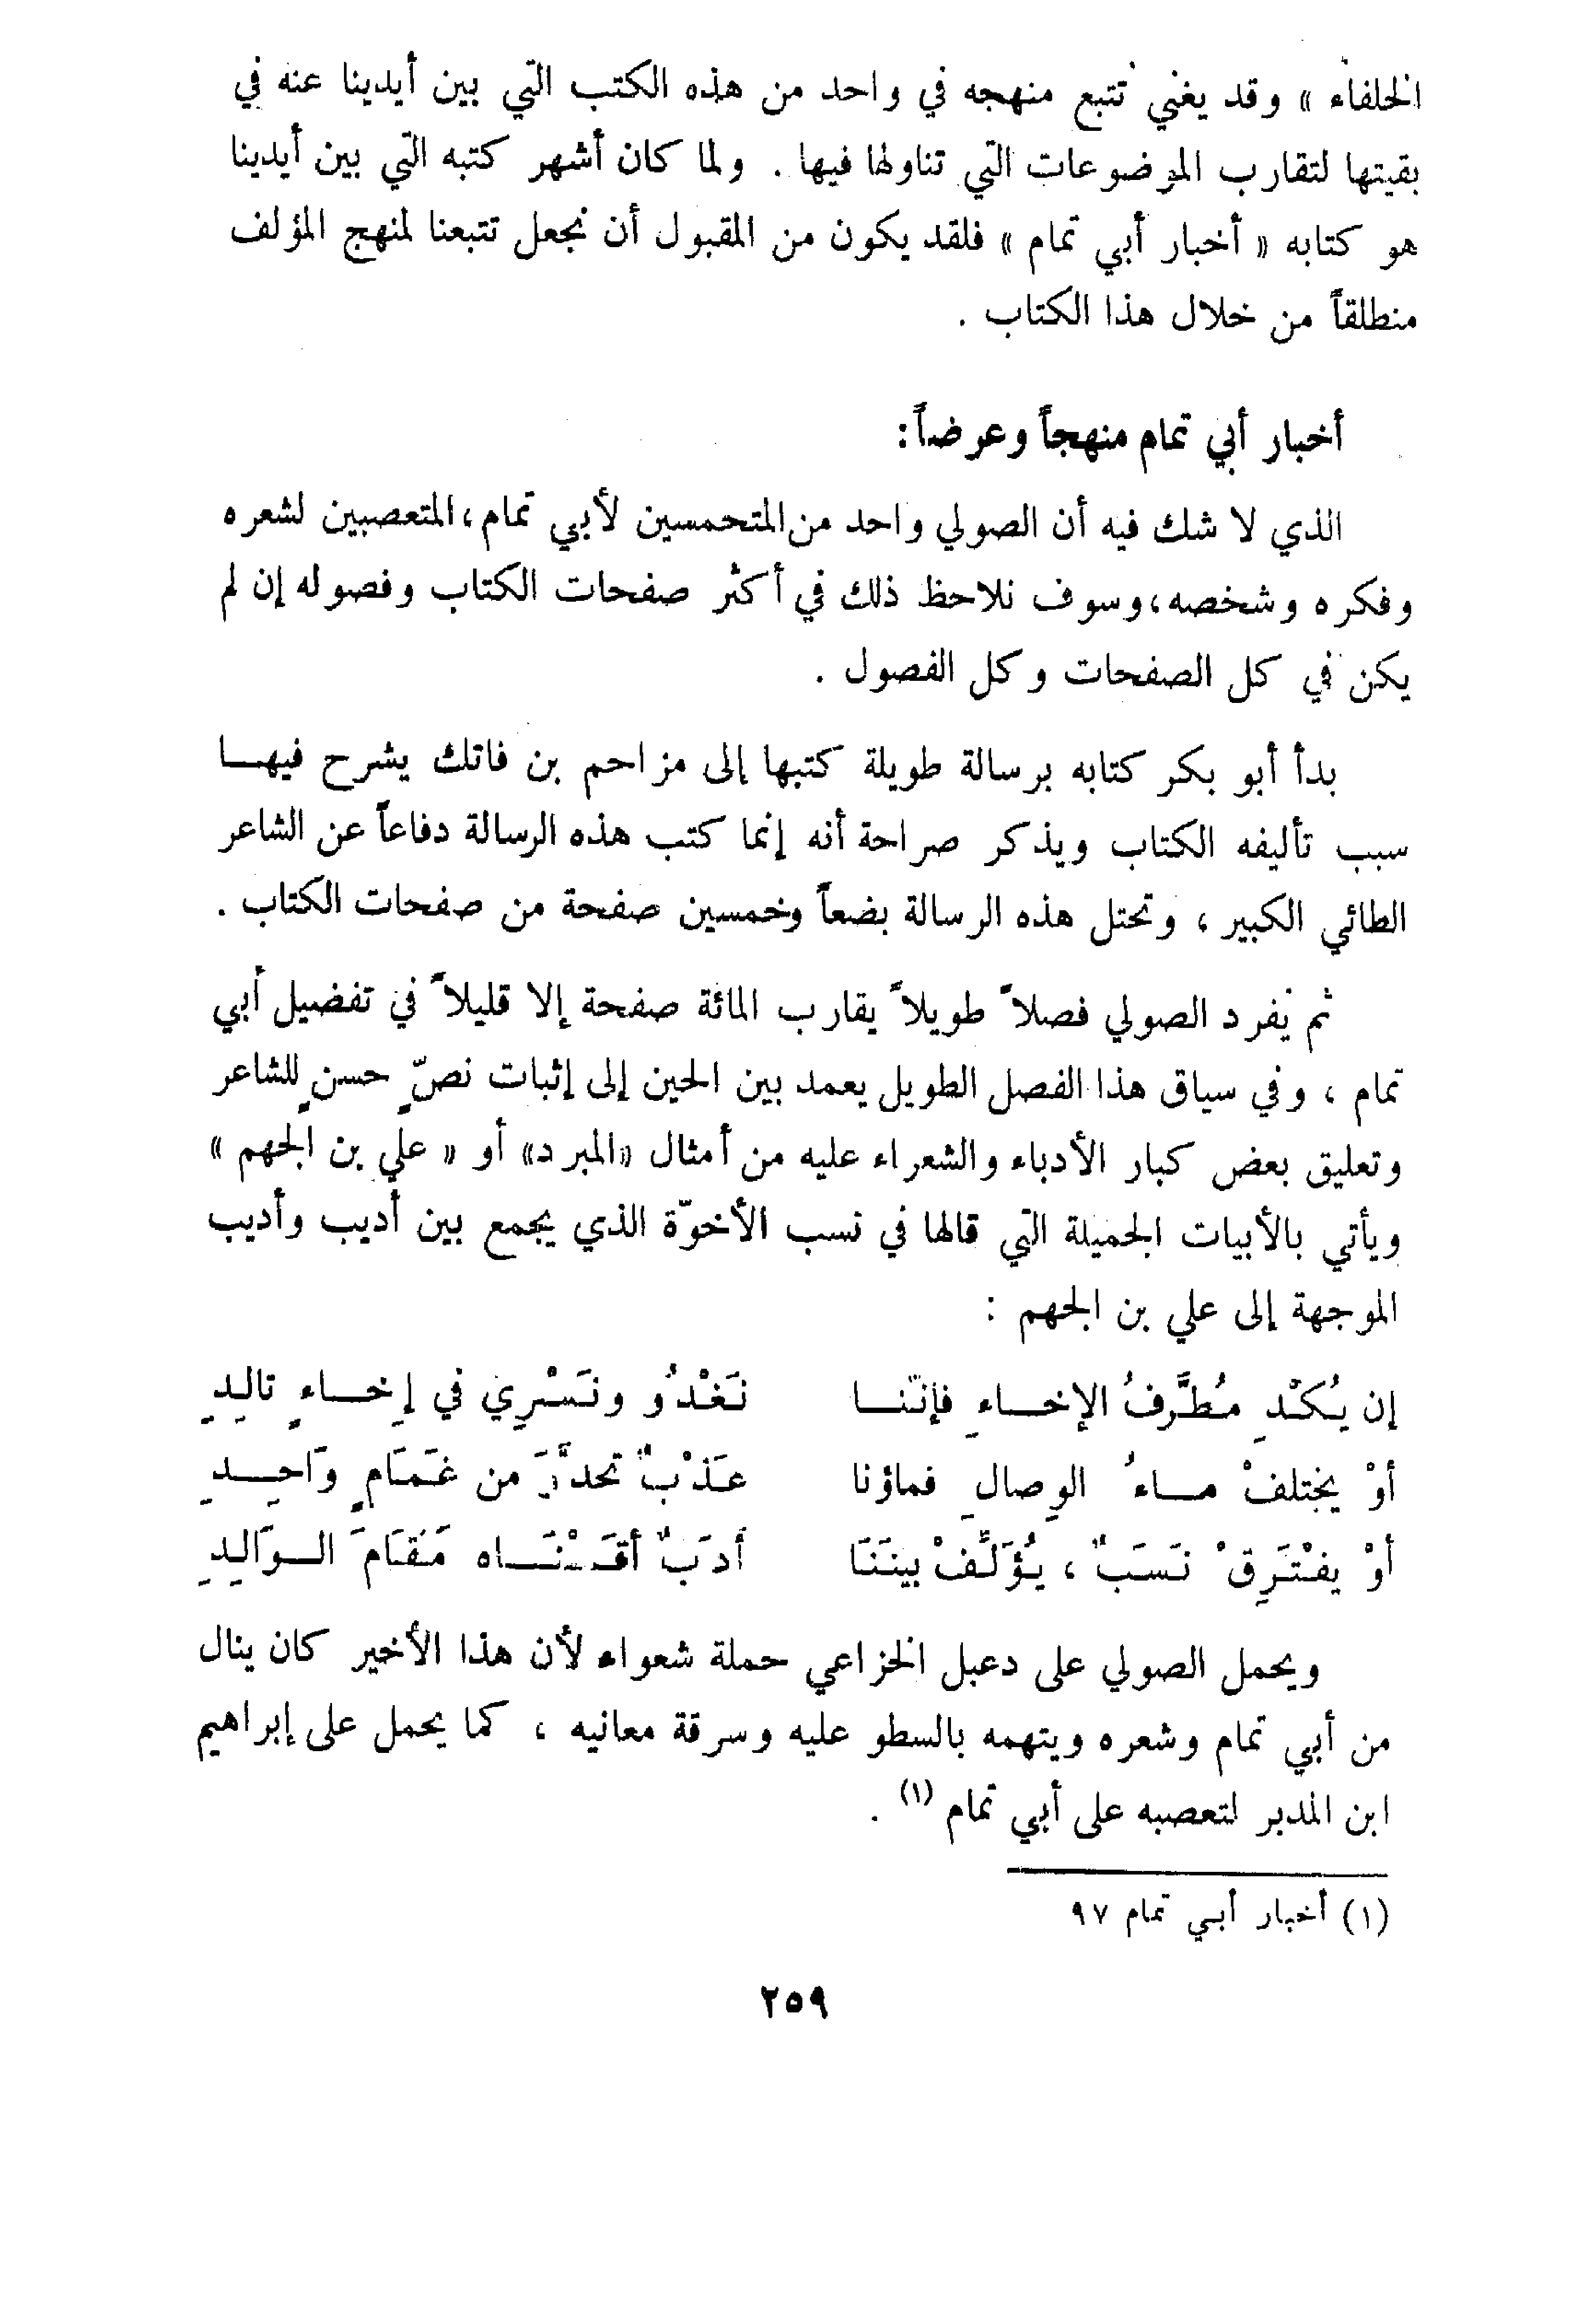 الخلفاء » وقد يغني تتبع منهجه في واحد من هذه الكتب التي بين أيدينا عنه في
بقيتها لتقارب الموضوعات التي تناولها فيها . ولما كان أشهر كتبه التي بين أيدينا
هو كتابه « أخبار أبي تمام » فلقد يكون من المقبول أن نجعل تتبعنا لمنهج المؤلف
منطلقاً من خلال هذا الكتاب .
أخبار أبي تمام منهجاً وعرضاً:
الذي لا شك فيه أن الصولي واحد من المتحمسين لأبي تمام، المتعصبين لشعره
وفكره وشخصه، وسوف نلاحظ ذلك في أكثر صفحات الكتاب وفصوله إن لم
يكن في كل الصفحات وكل الفصول .
بدأ أبو بكر كتابه برسالة طويلة كتبها إلى مزاحم بن فاتك يشرح فيهـا
سبب تأليفه الكتاب ويذكر صراحة أنه إنما كتب هذه الرسالة دفاعاً عن الشاعر
الطائي الكبير ، وتحتل هذه الرسالة بضعاً وخمسين صفحة من صفحات الكتاب .
ثم يُفرد الصولي فصلاً طويلاً يقارب المائة صفحة إلا قليلاً في تفضيل أبي
تمام ، وفي سياق هذا الفصل الطويل يعمد بين الحين إلى إثبات نصٍّ حسنٍ للشاعر
وتعليق بعض كبار الأدباء والشعراء عليه من أمثال «المبرد» أو « علي بن الجهم »
ويأتي بالأبيات الجميلة التي قالها في نسب الأخوّة الذي يجمع بين أديب وأديب
الموجهة إلى علي بن الجهم :
إن يُكْدِ مُطَّرفُ الإخـاءِ فإنّنـا نَغْدُو ونَسْرِي في إِخـاءٍ تالِدِ
أوْ يختلفْ مـاءُ الوِصالِ فماؤنا عَذْبٌ تحدَّرَ من غَمَامٍ وَاحِـدِ
أوْ يفْتَرِقْ نَسَبٌ ، يُؤَلِّفْ بينَنَا أدَبٌ أقَمْنَـاه مَقَامَ الـوَالِدِ
ويحمل الصولي على دعبل الخزاعي حملة شعواء لأن هذا الأخير كان ينال
من أبي تمام وشعره ويتهمه بالسطو عليه وسرقة معانيه ، كما يحمل على إبراهيم
ابن المدبر لتعصبه على أبي تمام (١) .
(١) أخبار أبي تمام ٩٧
٢٥٩